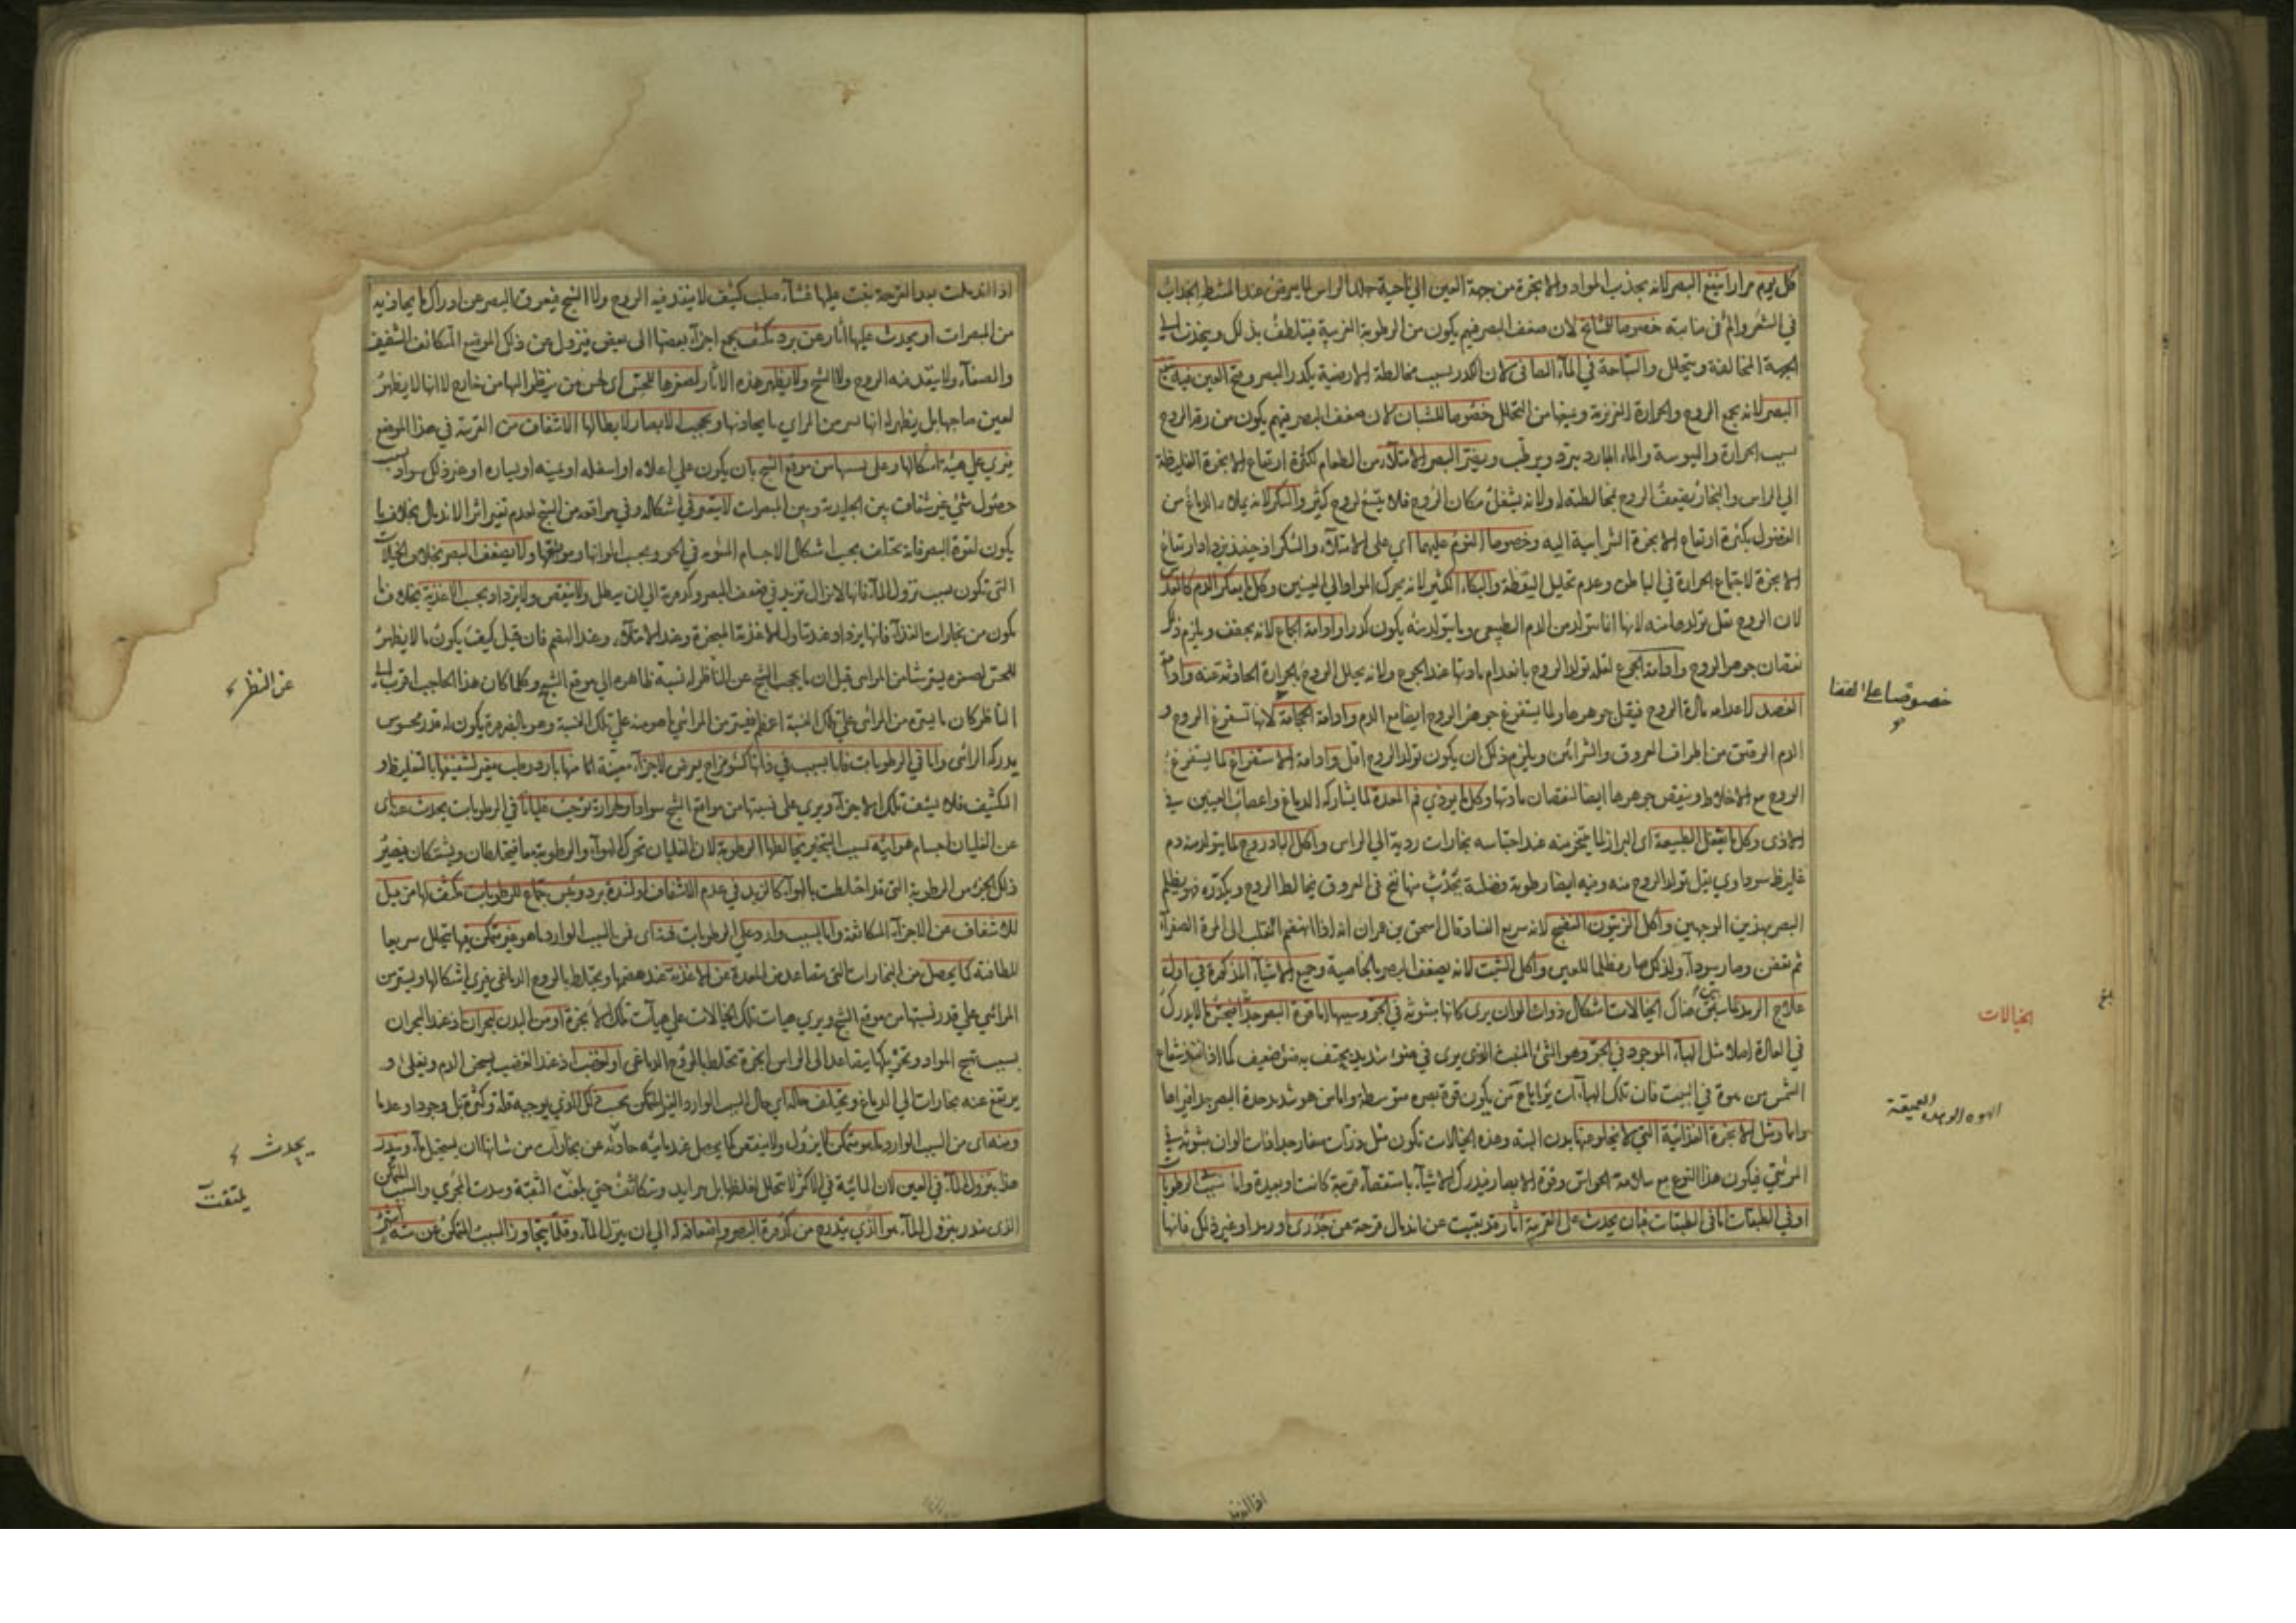 كل يوم مرارا ينفع البصر لانه يجذب المواد والابخرة من جهة العين الى ناحية جلد الراس لما يعرض عند المشط من انجذاب
في الشعر والم في منابته خصوصا للمشايخ لان ضعف البصر فيهم يكون من الرطوبة الغريبة فيتلطف بذلك وينجذب الى
الجهة المخالفة ويتحلل والسباحة في الماء الصافي لان الكدر بسبب مخالطة الارضية يكدر البصر وفتح العين فيه
البصر لانه يجمع الروح والحرارة الغريزية ويمنعها من التحلل خصوصا للشبان لان ضعف البصر فيهم يكون من رقة الروح
بسبب الحرارة واليبوسة والماء البارد يبرد ويرطب ويضر البصر الامتلاء من الطعام لكثرة ارتفاع الابخرة الغليظة
الى الراس والبخار يضعف الروح بمخالطته له ولانه يشغل مكان الروح فلا يتسع لروح كثير والسكر لانه يملاء الدماغ من
الفضول بكثرة ارتفاع الابخرة الشرابية اليه وخصوصا النوم عليهما اي على الامتلاء والسكر اذ حينئذ يزداد ارتفاع
الابخرة لاجتماع الحرارة في الباطن وعدم تحليل اليقظة والبكاء الكثير لانه يحرك المواد الى العينين وكل ما يعكر الدم
لان الروح يقل تولدها منه لانها انما تتولد من الدم الطبيعي وما يتولد منه يكون كدرا وادامة الجماع لانه يجفف ويلزم ذلك
نقصان جوهر الروح وادامة الجوع لقلة تولد الروح بانعدام مادتها عند الجوع ولانه يحلل الروح بالحرارة الحادثة عنه وادامة
الفصد لاعدامه مادة الروح فيقل جوهرها ولما يستفرغ جوهر الروح ايضا مع الدم وادامة الحجامة لانها تستفرغ الروح و
الدم الرقيق من اطراف العروق والشرائين ويلزم ذلك ان يكون تولد الروح اقل وادامة الاستفراغ لما يستفرغ
الروح مع الاخلاط وينقص جوهرها ايضا لنقصان مادتها وكل ما يوذي فم المعدة لما يشاركه الدماغ واعصاب العينين في
الاذى وكل ما يثقل الطبيعة اي البراز لما يتبخر منه عند احتباسه بخارات ردية الى الراس واكل الباذروج لما يتولد منه دم
غليظ سوداوي يقل تولد الروح منه وفيه ايضا رطوبة فضلية يحدث منها نفخ في العروق يخالط الروح ويكدره فهو يظلم
البصر بهذين الوجهين واكل الزيتون النضيج لانه سريع الفساد قال اسحق بن عمران انه اذا انهضم انقلب الى المرة الصفراء
ثم تعفن وصار سوداء ولذلك صار مظلما للعين واكل الشبت لانه يضعف البصر بالخاصية وجميع الاشياء المذكورة في اول
علاج الرمد مما يتقى هناك الخيالات اشكال ذوات الوان يرى كانها مبثوثة في الجو وسببها اما قوة البصر جدا فيحس بما لا يدرك
في العادة املا مثل الهباء الموجود في الجو وهو الشئ المنبث الذي يرى في ضوء شديد يحتف به ضوء ضعيف كما اذا نفذ شعاع
الشمس من كوة في البيت فان تلك الهباآت يراها من يكون قوة بصره متوسطة واما من هو شديد حدة البصر يراها
واما مثل الابخرة الغذائية التي لا يخلو عنها بدن البتة وهذه الخيالات تكون مثل ذرات صغار جدا ذات الوان مبثوثة في
المرئي فيكون هذا النوع مع سلامة الحواس وقوة الابصار فيدرك الاشياء باستقصاء قريبة كانت او بعيدة واما بسبب الرطوبات
او في الطبقات اما في الطبقات فبان يحدث على القرنية اثار قد بقيت عن اندمال قرحة عن جدري او رمد او غير ذلك فانها
خصوصا على القفا
الخيالات
بلغ
اذا اندملت بعد القرحة بقيت عليها غشاء صلب كثيف لا ينفذ فيه الروح ولا الشبح فيعوق البصر عن ادراك ما يحاذيه
من المبصرات او يحدث عليها اثار عن برد مكثف يجمع اجزاء بعضها الى بعض فيزول عن ذلك الموضع المتكاثف الشفيف
والصفاء ولا ينفذ فيه الروح ولا الشبح ولا يظهر هذه الاثار لصغرها للحس اي لحس من ينظر اليها من خارج لا انها لا يظهر
لعين صاحبها بل يظهر له انها تستر من المرائي ما يحاذيها ويحجب الابصار لابطالها الاشفاف من القرنية في هذا الموضع
فيرى على هيئة اشكالها وعلى نسبتها من موقع الشبح بان يكون على اعلاه او اسفله او يمينه او يساره او غير ذلك سوادا بسبب
حصول شئ غير شفاف بين الجليدية وبين المبصرات لا يتغير في اشكاله وفي مواقعه من الشبح لعدم تغير اثر الاندمال بخلاف ما
يكون لقوة البصر فانه يختلف بحسب اشكال الاجسام المبثوثة في الجو وبحسب الوانها ومواقعها ولا يضعف البصر بخلاف الخيالات
التي تكون بسبب نزول الماء فانها لا تزال تزيد في ضعف البصر وكدورته الى ان يبطل ولا ينتقص ولا يزداد بحسب الاغذية بخلاف ما
يكون من بخارات الغذاء فانها يزداد عند تناول الاغذية المبخرة وعند الامتلاء وعند الهضم فان قيل كيف يكون ما لا يظهر
للحس لصغره يستر شيئا من المرائي قيل ان ما يحجب الشبح عن الناظر له نسبة ظاهرة الى موقع الشبح وكلما كان هذا الحاجب اقرب الى
الناظر كان ما يستره من المرائي على تلك النسبة اعظم فيستر من المرائي ما هو منه على تلك النسبة وهو بالضرورة يكون له قدر محسوس
يدركه الرائي واما في الرطوبات فاما بسبب في ذاتها كسوء مزاج يعرض لاجزاء معينة اما منها بارد رطب مغير لشفيفها بالتغليظ و
التكثيف فلا يشف تلك الاجزاء ويرى على نسبتها من مواقع الشبح سوادا او لحرارة توجب غليانا في الرطوبات يحدث عنه اي
عن الغليان اجسام هوائية بسبب التبخير يخالطها الرطوبة لان الغليان تحرك الهواء والرطوبة معا فيختلطان ويشتبكان فيصير
ذلك الجزء من الرطوبة التي قد اختلطت بالهواء كالزبد في عدم الاشفاف او لشدة برد ويبس جماع للرطوبات مكثف لها مزيل
للاشفاف عن الاجزاء المتكاثفة واما بسبب وارد على الرطوبات فمنه اي من السبب الوارد ما هو غير متمكن فيها يتحلل سريعا
للطافته كما يحصل من البخارات التي تتصاعد من المعدة عن الاغذية عند هضمها ويختلط بالروح الدماغي فيرى اشكالها ويستر من
المرائي على قدر نسبتها من موقع الشبح ويرى هيات تلك الخيالات على هيآت تلك الابخرة او من البدن لبحران اذ عند البحران
بسبب تهيج المواد وتحريكها يتصاعد الى الراس ابخرة تختلط بالروح الدماغي او لغضب اذ عند الغضب يسخن الدم ويغلى و
يرتفع عنه بخارات الى الدماغ ويختلف حاله اي حال السبب الوارد الغير المتمكن بحسب ذلك الذي يوجبه قلة وكثرة قبل وجودا وعدما
ومنه اي من السبب الوارد ما هو متمكن لا يزول ولا ينتقص كما يحصل عند مائية حادثة عن بخارات من شانها ان يستحيل ماء وينذر
هذا بنزول الماء في العين لان المائية في الاكثر لا تتحلل لغلظها بل يزايد وتتكاثف حتى بلغت الثقبة وسدت المجرى والسبب المتمكن
الذي ينذر بنزول الماء هو الذي يتدرج من كدورة البصر واضعافه له الى ان ينزل الماء وقلما يتجاوز السبب المتمكن عن ستة اشهر
عن النظر
يحدث